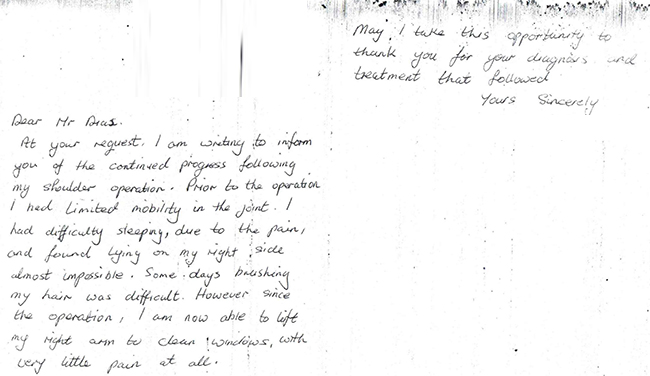 Dear Mr Dias.
At your request, I am writing to inform
you of the continued progress following
my shoulder operation. Prior to the operation
I had limited mobility in the joint. I
had difficulty sleeping, due to the pain,
and found lying on my right side
almost impossible. Some days brushing
my hair was difficult. However since
the operation, I am now able to lift
my right arm to clean windows, with
very little pain at all.
May I take this opportunity to
thank you for your diagnosis and
treatment that followed
Yours Sincerely